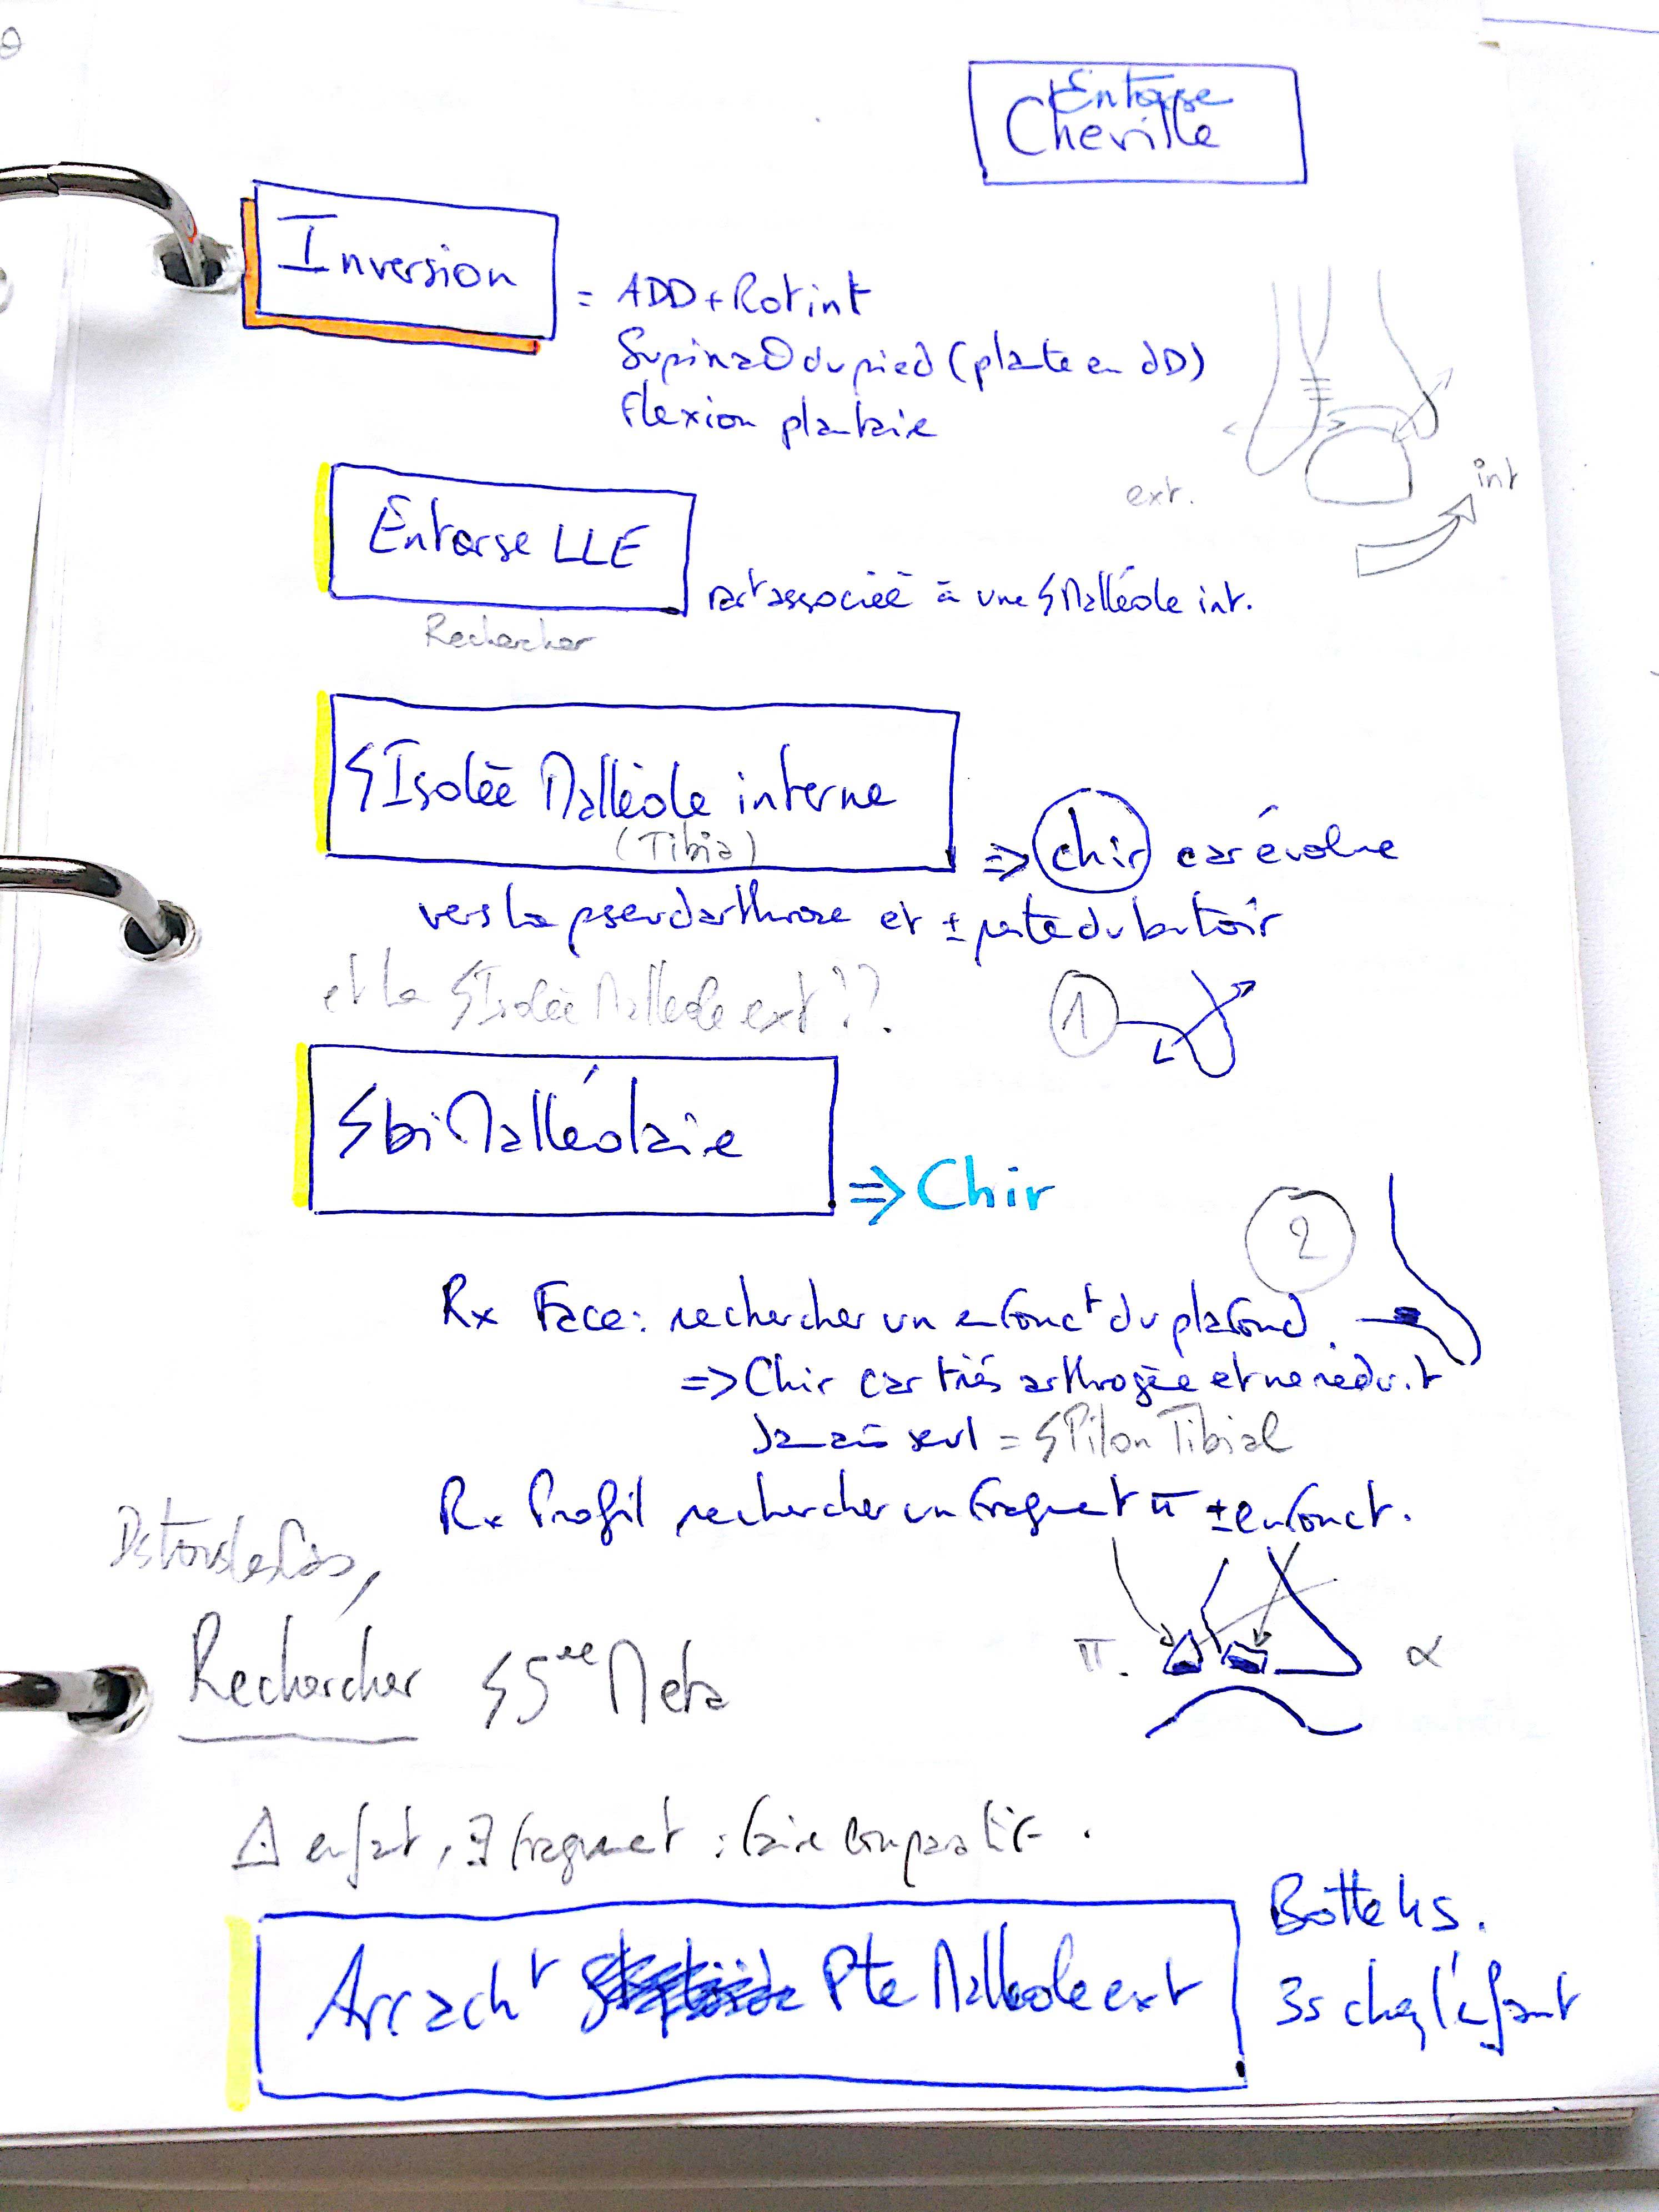 Entorse
Cheville
Inversion
= ADD + Rot int
SupinaΘ du pied (plante en dD)
flexion plantaire
ext.
int
Entorse LLE
rart associée à une ϟ Malléole int.
Rechercher
ϟ Isolée Malléole interne
(Tibia)
=> chir car évolue
vers la pseudarthrose et ± perte du butoir
et la ϟ Isolée Malléole ext ??
1
ϟ bi Malléolaire
=> Chir
2
Rx Face : rechercher un enfonct du plafond
=> Chir car très arthrogène et ne réduit
Jamais seul = ϟ Pilon Tibial
Rx Profil rechercher un fragment π ± enfonct.
Ds tous les Cas,
Rechercher ϟ 5ème Meta
π. α
⚠ enfant, ∃ fragment : faire comparatif.
Arracht Pte Malléole ext
Botte 4s.
3s chez l'enfant